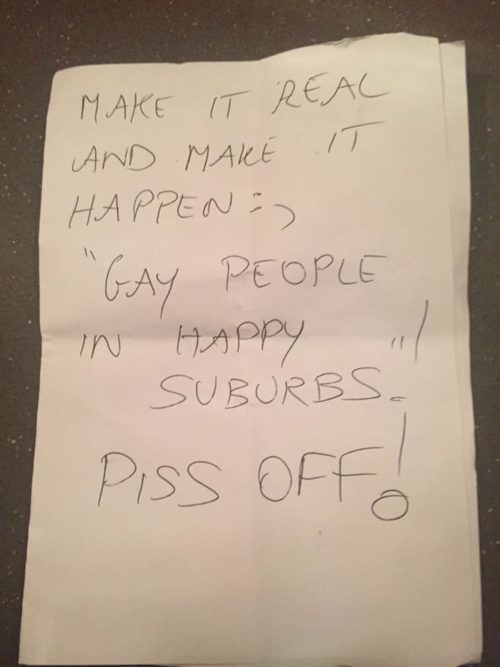 MAKE IT REAL
AND MAKE IT
HAPPEN :-)
"GAY PEOPLE
IN HAPPY "!
SUBURBS.
PISS OFF!